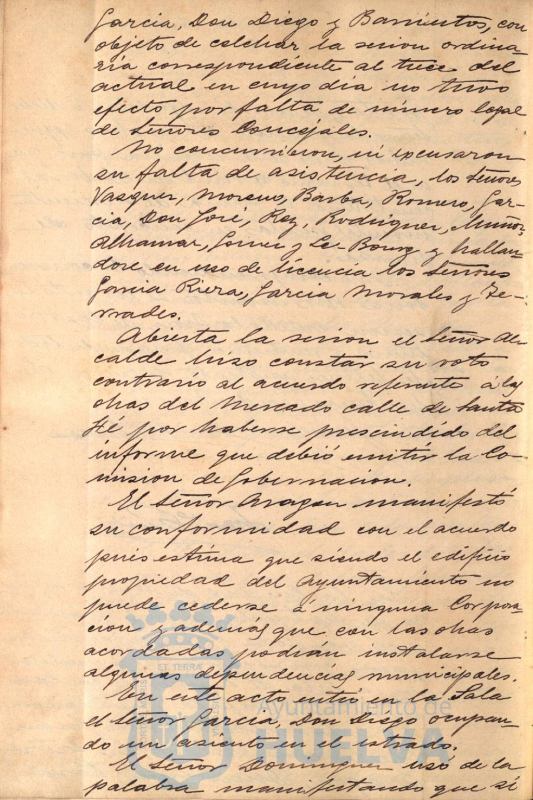 Garcia, Don Diego y Barrientos, con
objeto de celebrar la sesion ordina-
ria correspondiente al trece del
actual en cuyo dia no tuvo
efecto por falta de número legal
de Señores Concejales.
No concurrieron, ni excusaron
su falta de asistencia, los Señores
Vasquez, Moreno, Barba, Romero, Gar-
cia, Don José, Rey, Rodriguez, Muñoz,
Alhamar, y Le Bourg y hallan-
dose en uso de licencia los Señores
Garcia Riera, Garcia Morales y Te-
rrades.
Abierta la sesion el Señor Al-
calde hizo constar su voto
contrario al acuerdo referente á las
obras del Mercado calle de Santa
Fé por haberse prescindido del
informe que debió emitir la Co-
mision de Gobernacion.
El Señor Aragon manifestó
su conformidad con el acuerdo
pues estima que siendo el edificio
propiedad del Ayuntamiento no
puede cederse á ninguna Corpora-
cion y además que con las obras
acordadas podrán instalarse
algunas dependencias municipales.
En este acto entró en la Sala
el Señor Garcia, Don Diego ocupan-
do un asiento en el estrado.
El Señor Dominguez usó de la
palabra manifestando que si
Ayuntamiento de
HUELVA